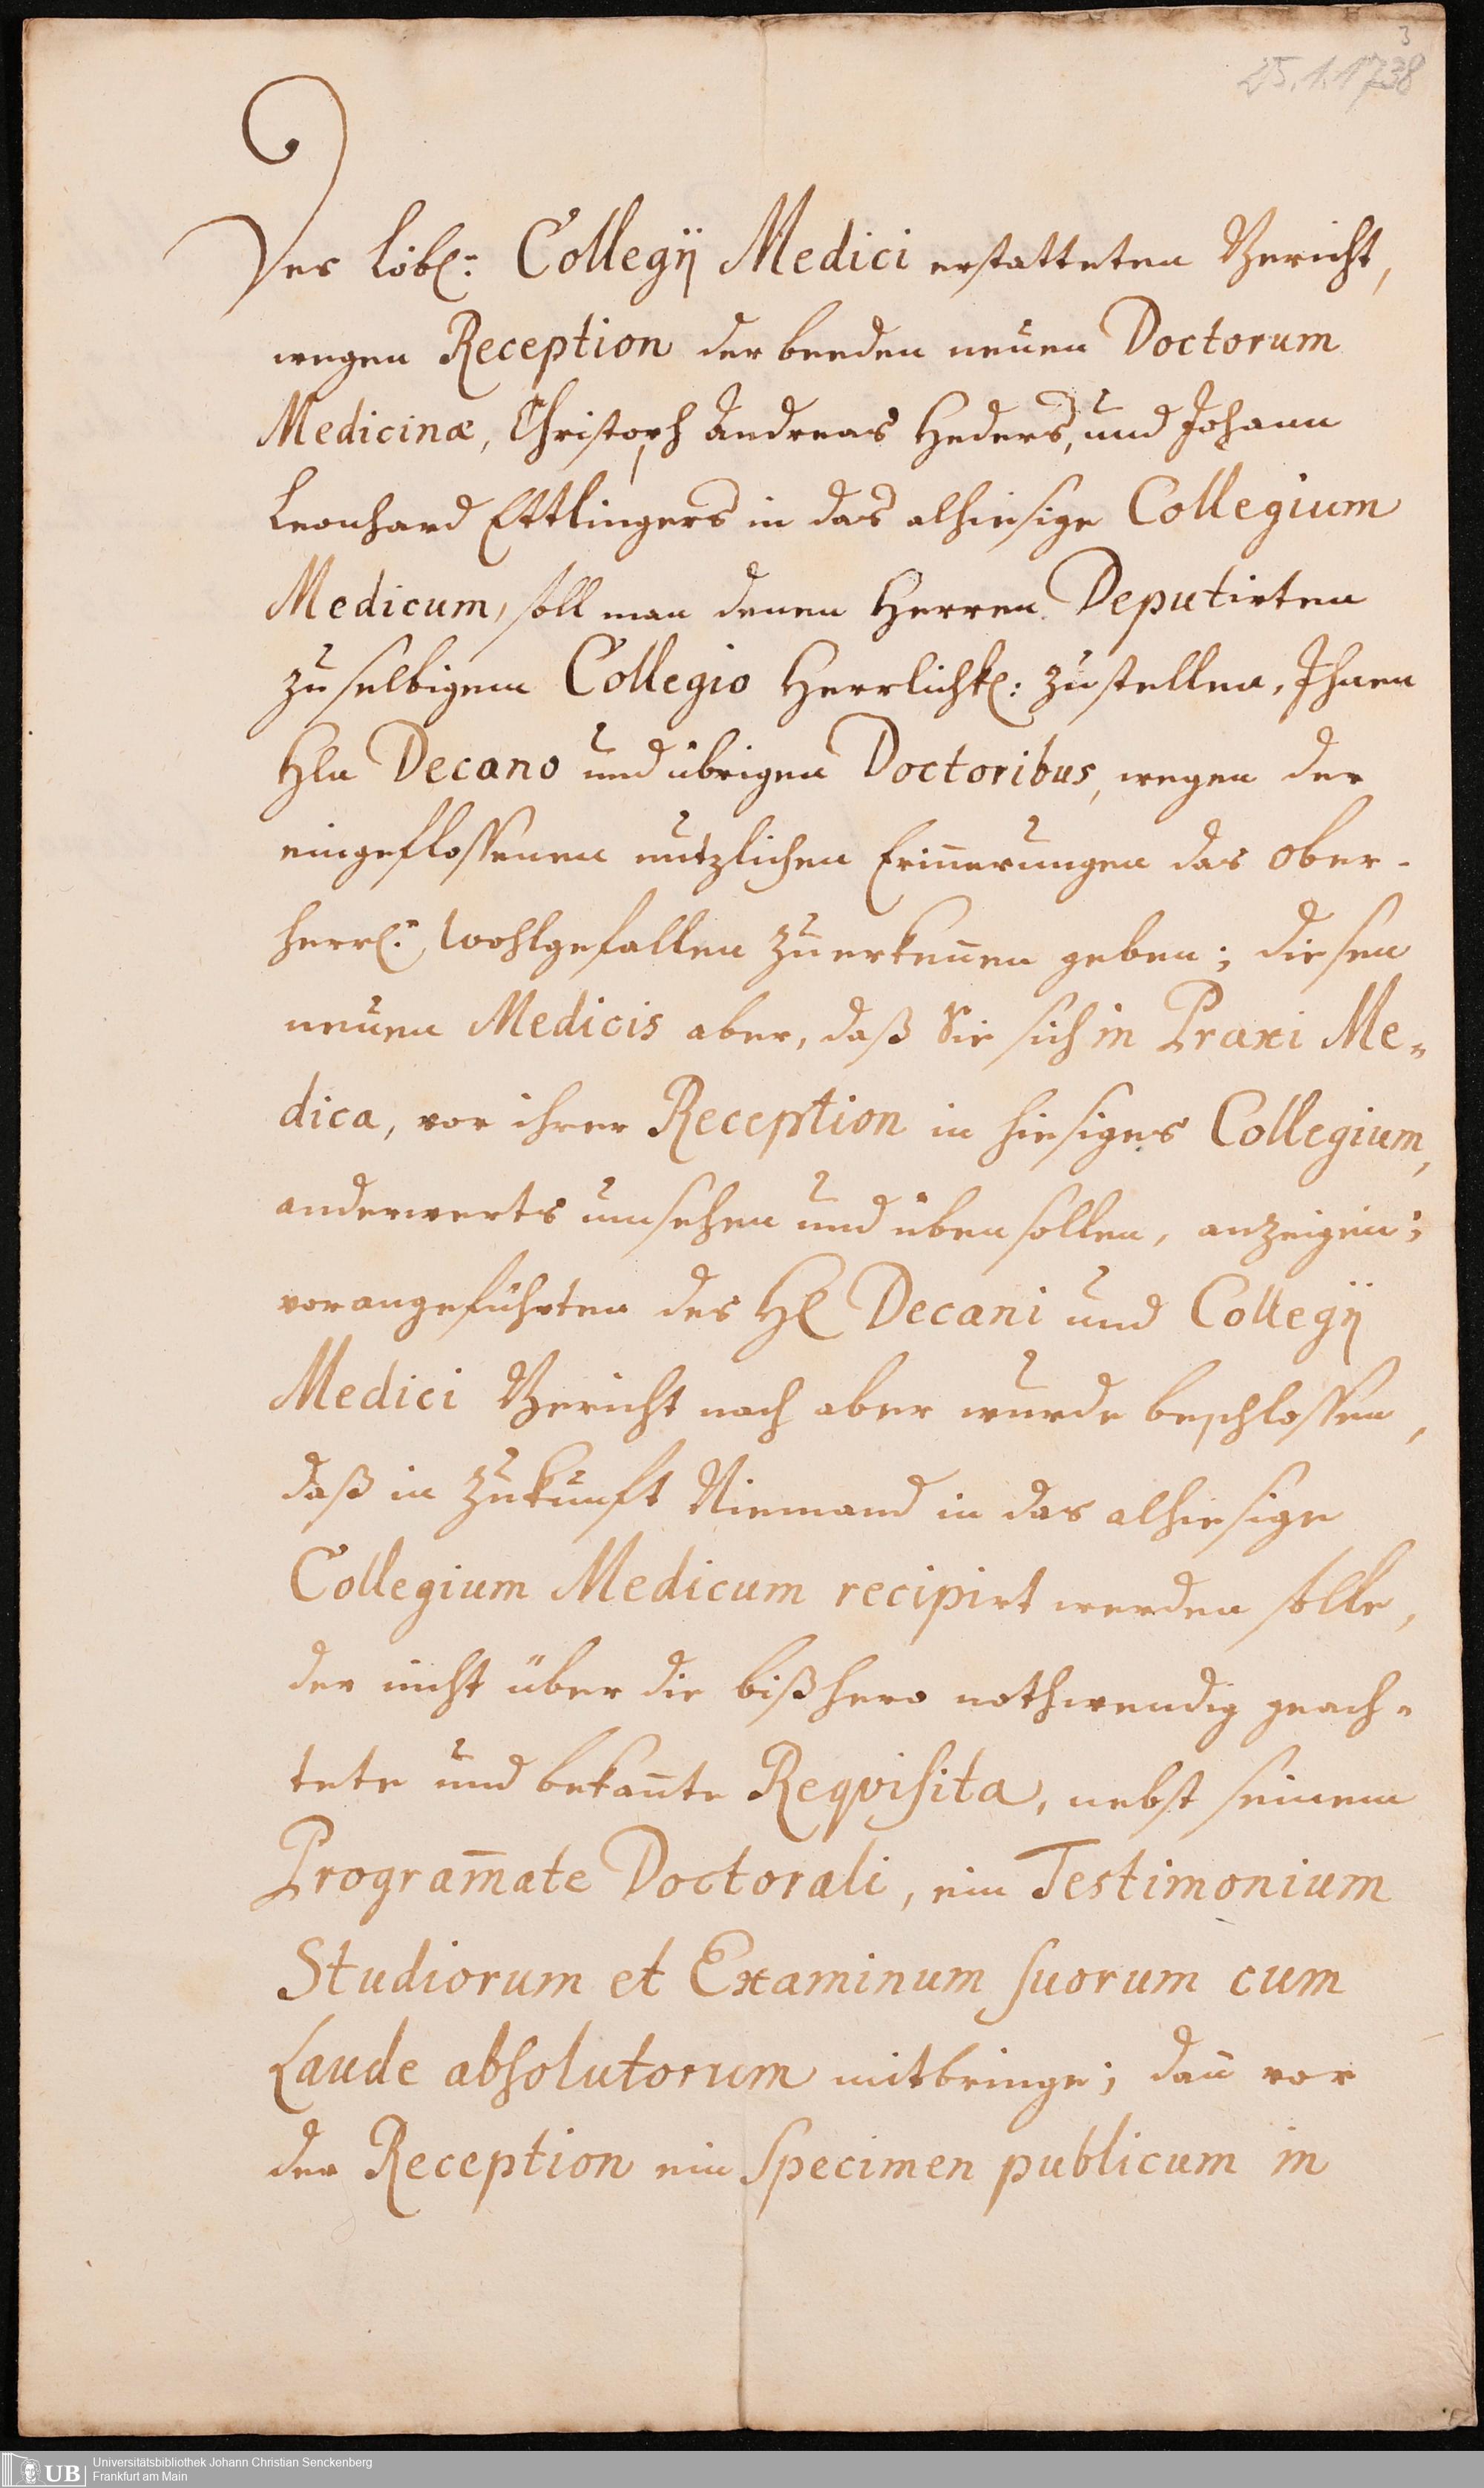 3
25.1.1738
Des Löbl: Collegij Medici erstatteten Bericht,
wegen Reception der beeden neuen Doctorum
Medicinæ, Christoph Andreas Heders, und Johann
Leonhard Ettlingers in das alhiesige Collegium
Medicum, soll man denen Herren Deputirten
zu selbigem Collegio Herrlichk: zustellen, Ihnen
Hln Decano und übrigen Doctoribus, wegen der
eingeflossenen nutzlichen Erin̄erungen das Ober-
herrl: Wohlgefallen zuerken̄en geben; diesen
neuen Medicis aber, daß Sie sich in Praxi Me-
dica, vor ihrer Reception in hiesiges Collegium,
anderwerts umsehen und üben sollen, anzeigen;
vorangeführten des Hl Decani und Collegij
Medici Bericht nach aber wurde beschlossen,
daß in Zukunft Niemand in das alhiesige
Collegium Medicum recipirt werden solle,
der nicht über die bißhero nothwendig geach-
tete und bekan̄te Reqvisita, nebst seinem
Program̄ate Doctorali, ein Testimonium
Studiorum et Examinum suorum cum
Laude absolutorum mitbringe; dan̄ vor
der Reception ein Specimen publicum in
UB
Universitätsbibliothek Johann Christian Senckenberg
Frankfurt am Main